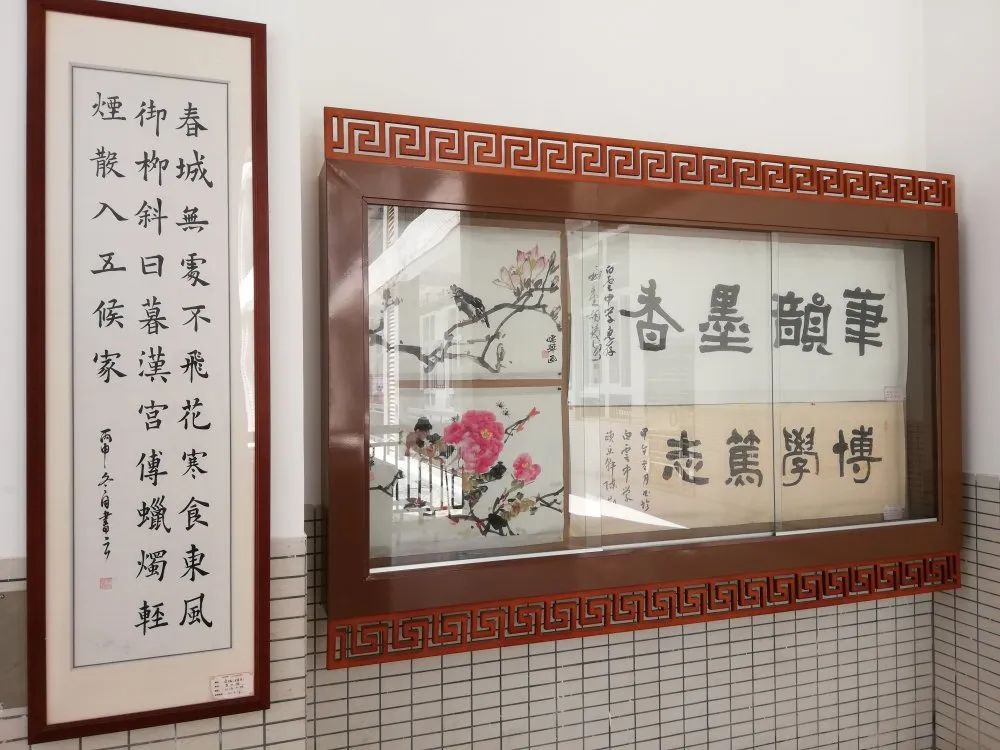 春城無處不飛花寒食東風
御栁斜日暮漢宮傅蠟燭輕
煙散入五候家
丙申冬月書
筆韻墨香
白雲中學惠存
博學篤志
白雲中學